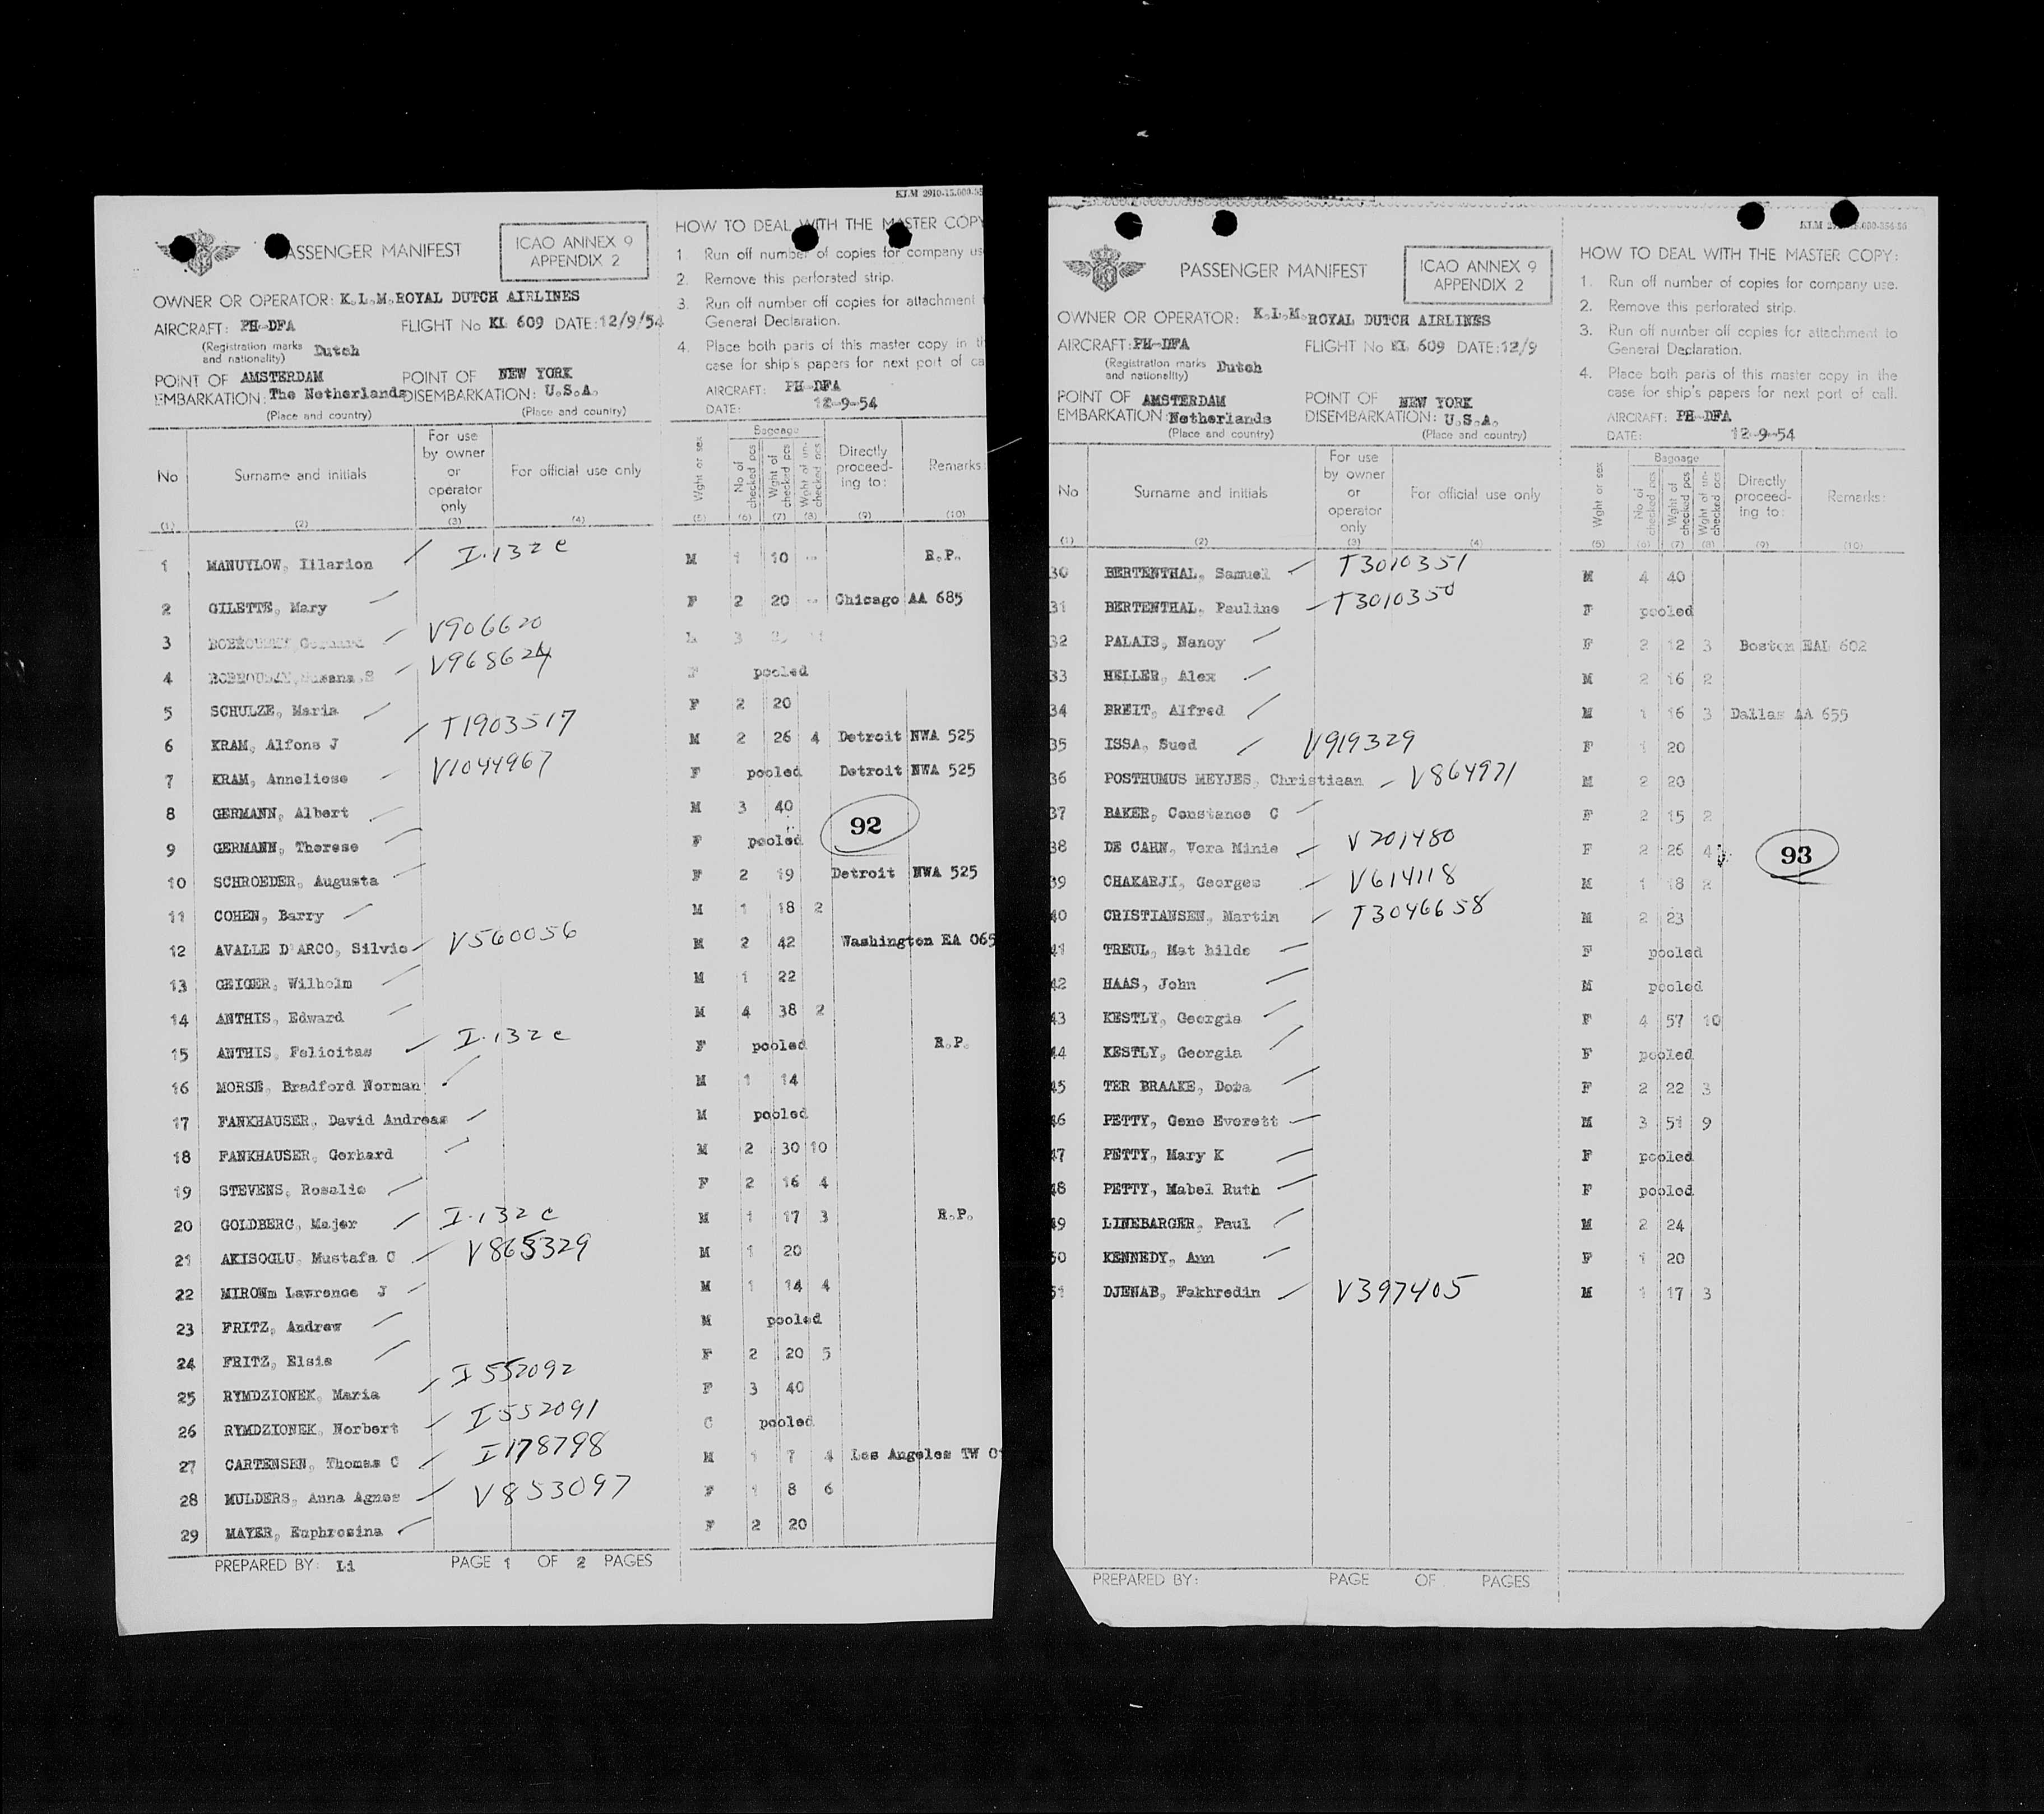 KLM 2910-15.000-55
PASSENGER MANIFEST
ICAO ANNEX 9
APPENDIX 2
OWNER OR OPERATOR: K.L.M. ROYAL DUTCH AIRLINES
AIRCRAFT: PH-DFA FLIGHT No KL 609 DATE: 12/9/54
(Registration marks and nationality) Dutch
POINT OF EMBARKATION: AMSTERDAM The Netherlands POINT OF DISEMBARKATION: NEW YORK U.S.A.
(Place and country) (Place and country)
HOW TO DEAL WITH THE MASTER COPY
1. Run off number of copies for company us
2. Remove this perforated strip.
3. Run off number off copies for attachment
General Declaration.
4. Place both parts of this master copy in th
case for ship's papers for next port of ca
AIRCRAFT: PH-DFA
DATE: 12-9-54
No Surname and initials For use by owner or operator only For official use only Wght or sex Baggage No of checked pcs Wght of checked pcs Wght of un-checked pcs Directly proceed-ing to: Remarks:
(1) (2) (3) (4) (5) (6) (7) (8) (9) (10)
1 MANUYLOW, Illarion I.132c M 1 10 -- R.P.
2 GILETTE, Mary F 2 20 -- Chicago AA 685
3 V906620 3
4 V968624 F pooled
5 SCHULZE, Maria F 2 20
6 KRAM, Alfons J T1903517 M 2 26 4 Detroit NWA 525
7 KRAM, Anneliese V1044967 F pooled Detroit NWA 525
8 GERMANN, Albert M 3 40
9 GERMANN, Therese F pooled
92
10 SCHROEDER, Augusta F 2 19 Detroit NWA 525
11 COHEN, Barry M 1 18 2
12 AVALLE D'ARCO, Silvio V560056 M 2 42 Washington EA 065
13 GEIGER, Wilhelm M 1 22
14 ANTHIS, Edward M 4 38 2
15 ANTHIS, Felicitas I.132c F pooled R.P.
16 MORSE, Bradford Norman M 1 14
17 FANKHAUSER, David Andreas M pooled
18 FANKHAUSER, Gerhard M 2 30 10
19 STEVENS, Rosalie F 2 16 4
20 GOLDBERG, Majer I.132c M 1 17 3 R.P.
21 AKISOGLU, Mustafa C V865329 M 1 20
22 MIRONm Lawrence J M 1 14 4
23 FRITZ, Andrew M pooled
24 FRITZ, Elsie F 2 20 5
25 RYMDZIONEK, Maria I552092 F 3 40
26 RYMDZIONEK, Norbert I552091 C pooled
27 CARTENSEN, Thomas C I178798 M 1 7 4 Los Angeles TW
28 MULDERS, Anna Agnes V853097 F 1 8 6
29 MAYER, Euphrosina F 2 20
PREPARED BY: Li PAGE 1 OF 2 PAGES
PASSENGER MANIFEST
ICAO ANNEX 9
APPENDIX 2
OWNER OR OPERATOR: K.L.M. ROYAL DUTCH AIRLINES
AIRCRAFT: PH-DFA FLIGHT No KL 609 DATE: 12/9
(Registration marks and nationality) Dutch
POINT OF EMBARKATION: AMSTERDAM Netherlands POINT OF DISEMBARKATION: NEW YORK U.S.A.
(Place and country) (Place and country)
HOW TO DEAL WITH THE MASTER COPY:
1. Run off number of copies for company use.
2. Remove this perforated strip.
3. Run off number off copies for attachment to
General Declaration.
4. Place both parts of this master copy in the
case for ship's papers for next port of call.
AIRCRAFT: PH-DFA
DATE: 12-9-54
No Surname and initials For use by owner or operator only For official use only Wght or sex Baggage No of checked pcs Wght of checked pcs Wght of un-checked pcs Directly proceed-ing to: Remarks:
(1) (2) (3) (4) (5) (6) (7) (8) (9) (10)
30 BERTENTHAL, Samuel T3010351 M 4 40
31 BERTENTHAL, Pauline T3010350 F pooled
32 PALAIS, Nancy F 2 12 3 Boston EAL 602
33 HELLER, Alex M 2 16 2
34 BREIT, Alfred M 1 16 3 Dallas AA 655
35 ISSA, Sued V919329 F 1 20
36 POSTHUMUS MEYJES, Christiaan V864971 M 2 20
37 BAKER, Constance C F 2 15 2
38 DE CAHN, Vera Minie V201480 F 2 26 4
93
39 CHAKARJI, Georges V614118 M 1 18 2
40 CRISTIANSEN, Martin T3046658 M 2 23
41 TREUL, Mat hilde F pooled
42 HAAS, John M pooled
43 KESTLY, Georgia F 4 57 10
44 KESTLY, Georgia F pooled
45 TER BRAAKE, Dora F 2 22 3
46 PETTY, Gene Everett M 3 51 9
47 PETTY, Mary K F pooled
48 PETTY, Mabel Ruth F pooled
49 LINEBARGER, Paul M 2 24
50 KENNEDY, Ann F 1 20
51 DJENAB, Fakhredin V397405 M 1 17 3
PREPARED BY: PAGE OF PAGES